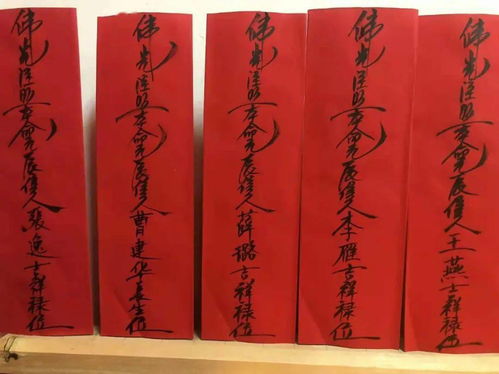 佛光注照本命元辰信人裴逸吉祥禄位
佛光注照本命元辰信人曹建华長生位
佛光注照本命元辰信人薛璐吉祥禄位
佛光注照本命元辰信人李雁吉祥禄位
佛光注照本命元辰信人王燕吉祥禄位